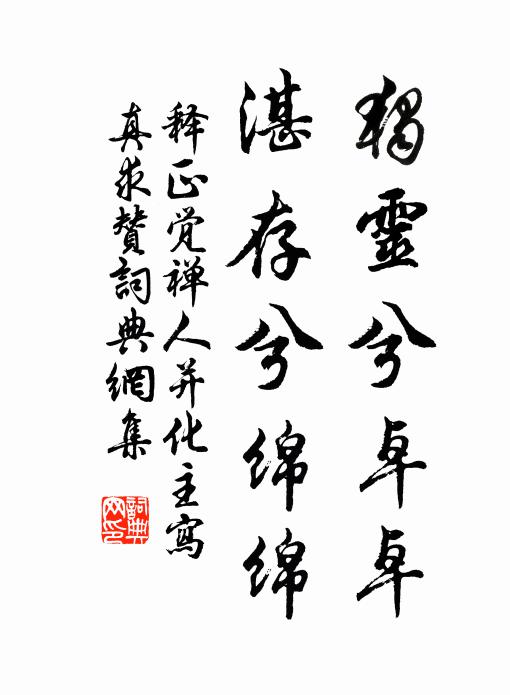 獨靈兮卓卓
湛存兮綿綿
释正觉禅人并化主寫
真求贊詞典網集
詞典
网印